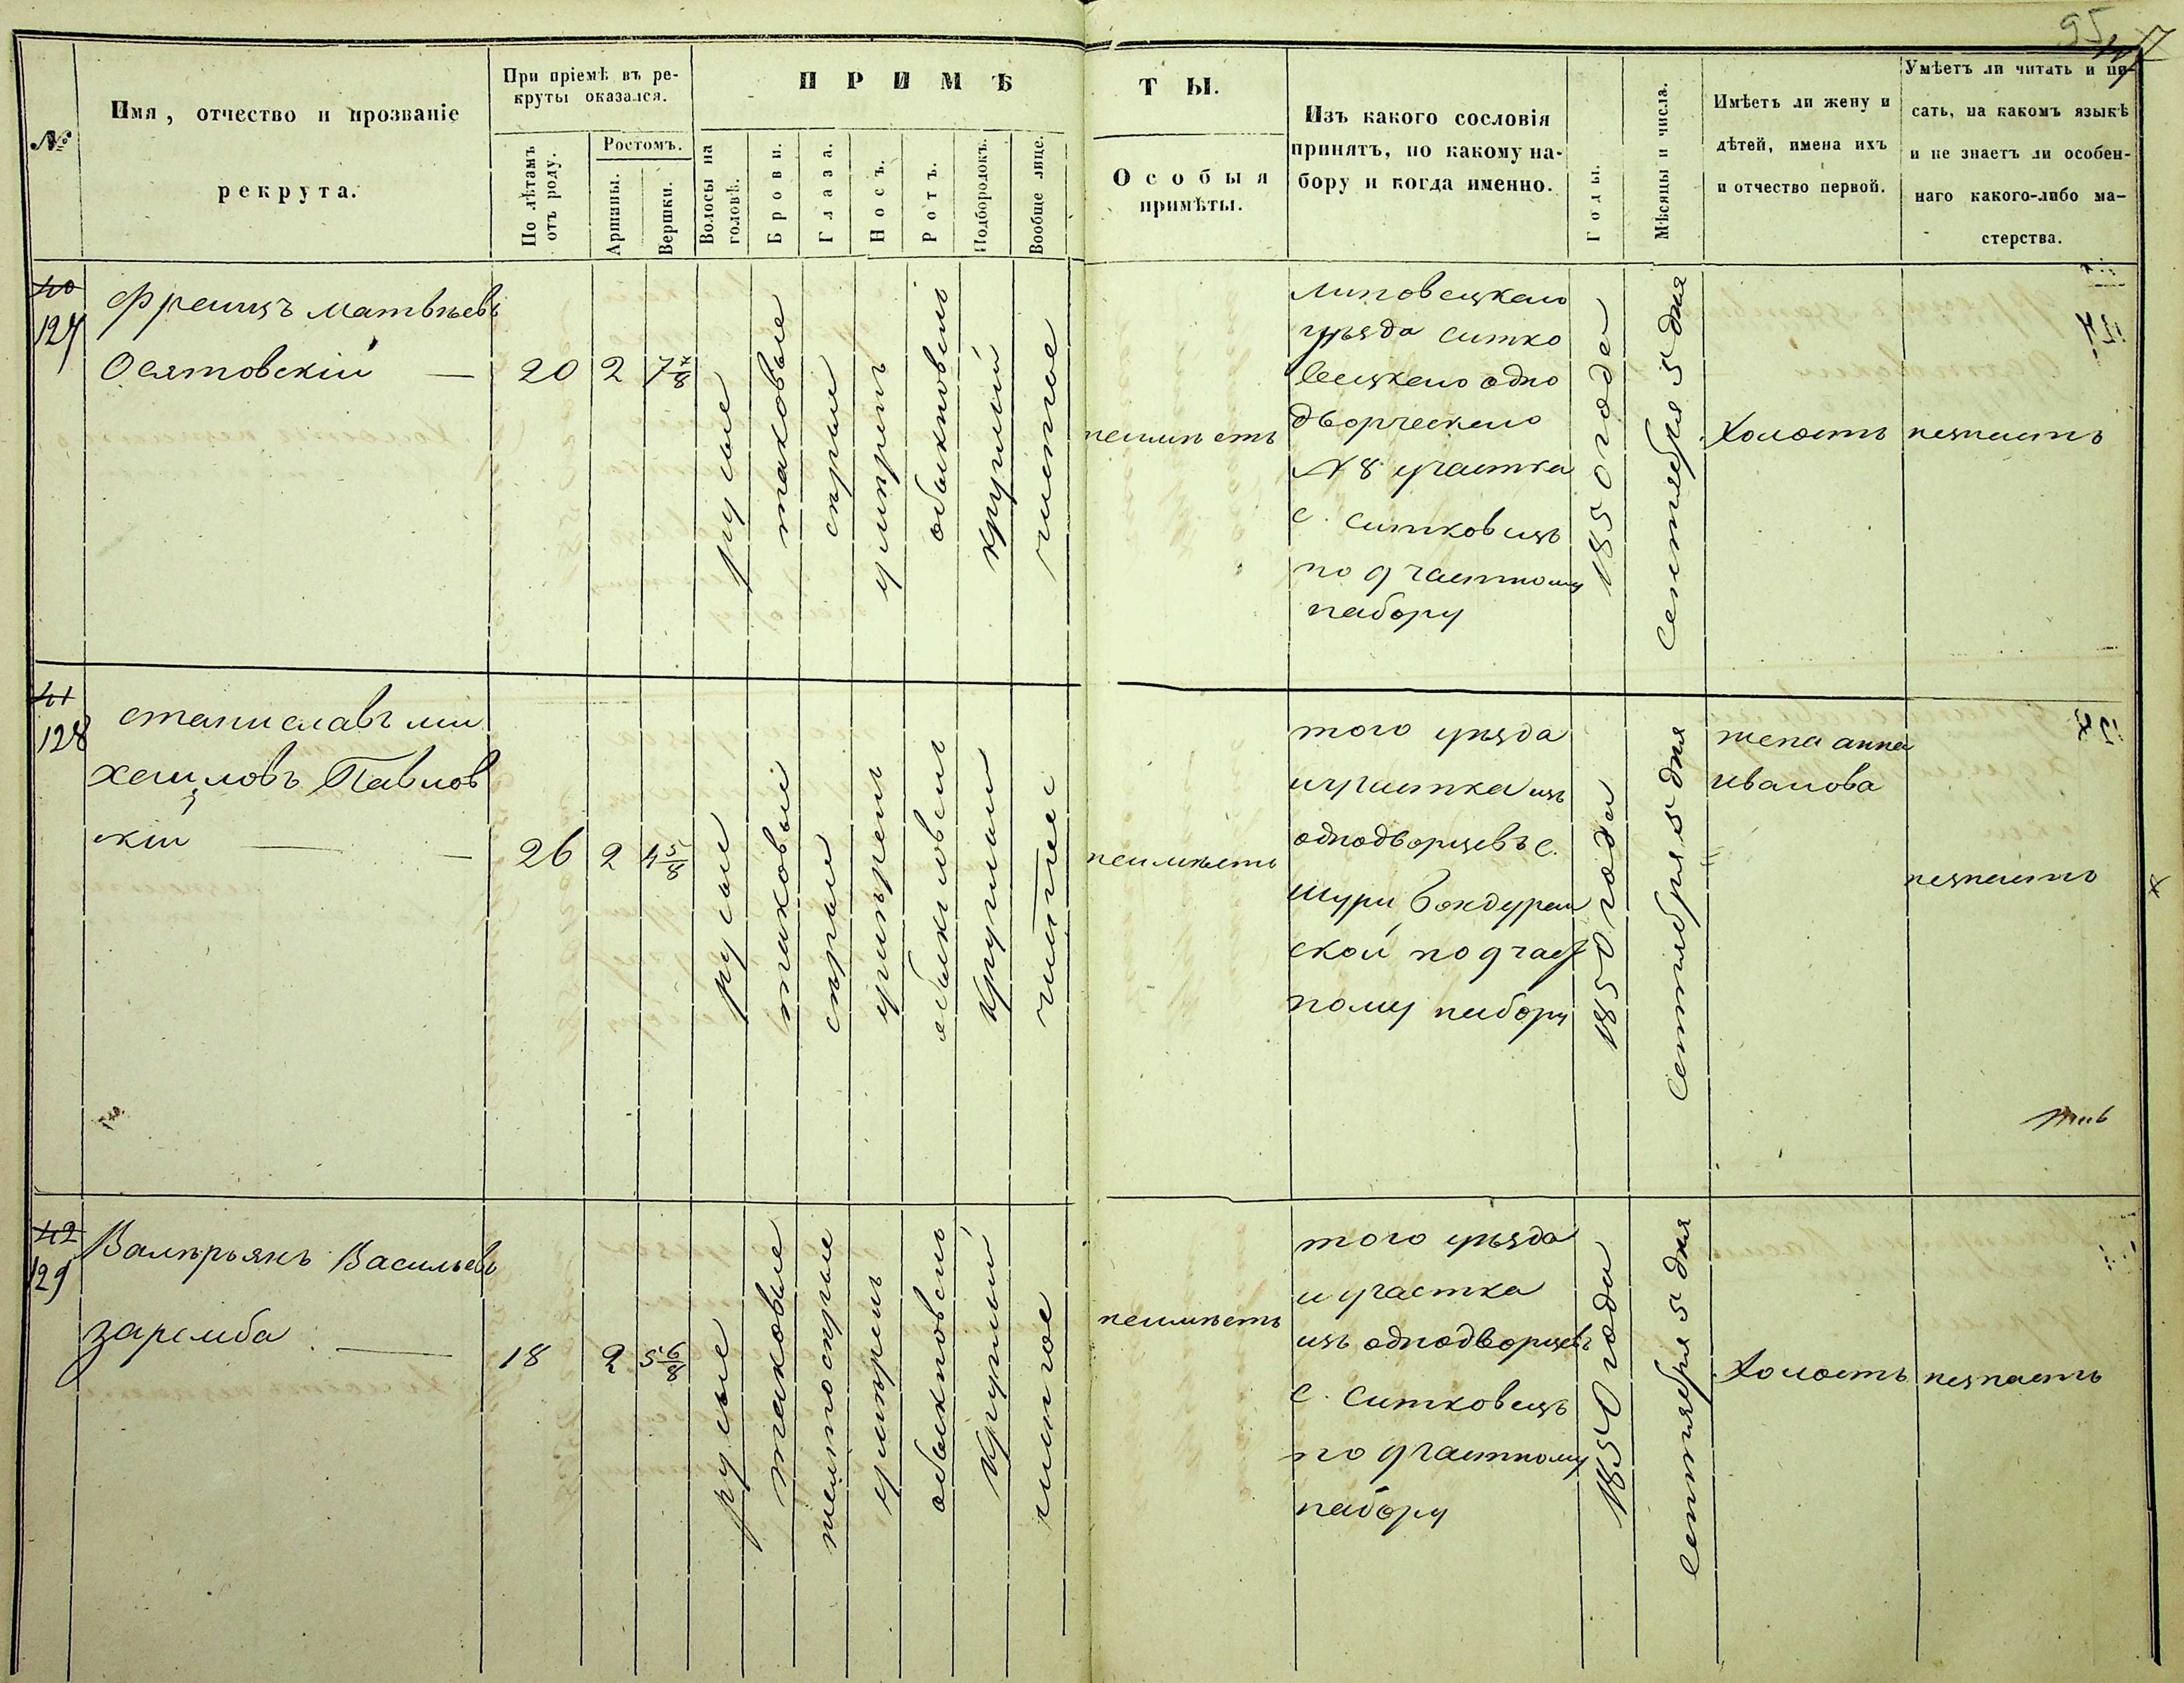 95
№
Имя, отчество и прозваніе
рекрута.
При пріемѣ въ ре-
круты оказался.
По лѣтамъ
отъ роду.
Ростомъ.
Аршины.
Вершки.
ПРИМѢ
ТЫ.
Волосы на
головѣ.
Брови.
Глаза.
Носъ.
Ротъ.
Подбородокъ.
Вообще лице.
Особыя
примѣты.
Изъ какого сословія
принятъ, по какому на-
бору и когда именно.
Годы.
Мѣсяцы и числа.
Имѣетъ ли жену и
дѣтей, имена ихъ
и отчество первой.
Умѣетъ ли читать и пи-
сать, на какомъ языкѣ
и не знаетъ ли особен-
наго какого-либо ма-
стерства.
40
127
Францъ Матвѣевъ
Осятовскій
20
2
7 7/8
русые
таковые
сѣрые
умѣренъ
обыкновенъ
круглый
чистое
неимѣетъ
Липовецкаго
уѣзда Ситко
вецкаго одно
дворческаго
№ 8 участка
с. Ситковецъ
по 9 частному
набору
1850 года
Сентября 5 дня
Холостъ
незнаетъ
41
128
Станиславъ Ми
хаиловъ Павлов
скій
26
2
4 5/8
русые
таковые
сѣрые
умѣренъ
обыкновенъ
круглый
чистое
неимѣетъ
того уѣзда
и участка изъ
однодворцевъ с.
Шури Бондурев
ской по 9 част
ному набору
1850 года
Сентября 5 дня
жена Анна
Иванова
незнаетъ
42
129
Валѣрьянъ Васильевъ
Заремба
18
2
5 6/8
русые
таковые
желтосѣрые
умѣренъ
обыкновенъ
круглый
чистое
неимѣетъ
того уѣзда
и участка
изъ однодворцевъ
с. Ситковецъ
по 9 частному
набору
1850 года
Сентября 5 дня
Холостъ
незнаетъ